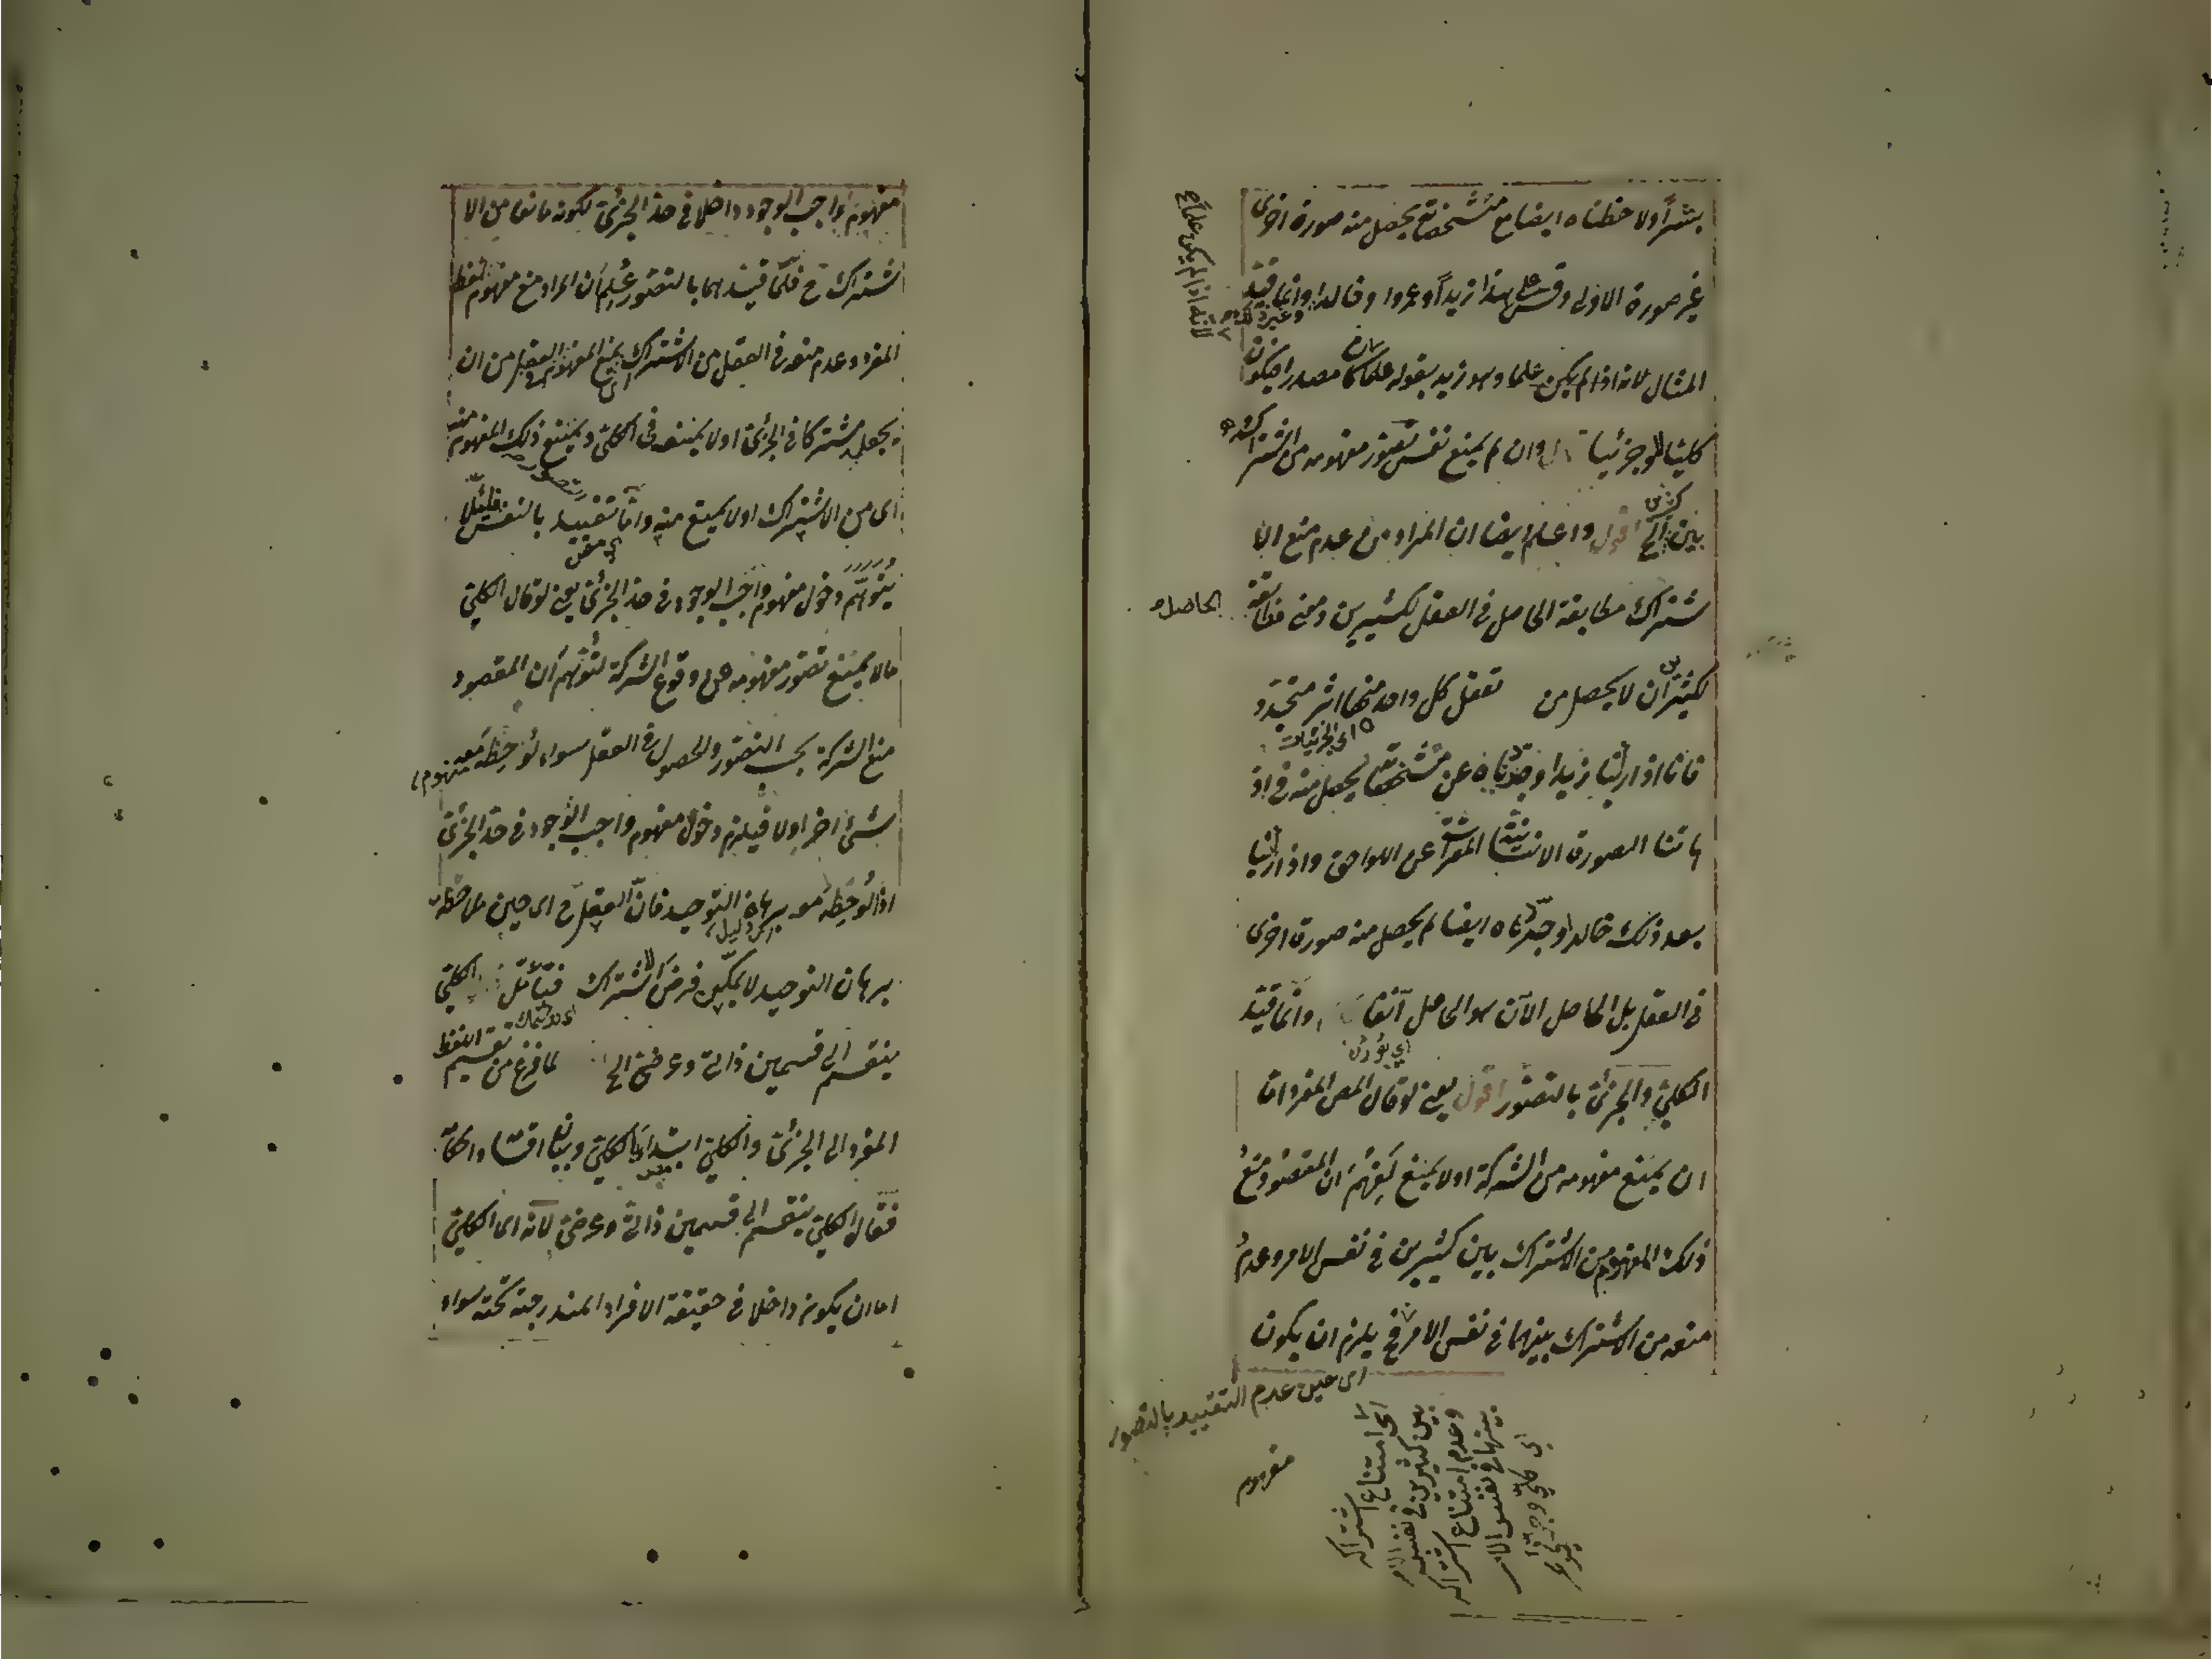 بشراً ولاحظناه ايضا مع مشخصاته يحصل منه صورة اخرى
غير صورة الاولى وقس على هذا زيداً وعمروا وخالدا وانما قيد
المثال لانه اذا لم يكن علما وهو زيد بقوله علما كان مصدرا فيكون
كليا لا جزئيا وان لم يمنع نفس تصور مفهومه من اشتراكه
بين كثيرين الخ اقول واعلم ايضا ان المراد من عدم منع الا
شتراك مطابقة الحاصل في العقل لكثيرين ومعنى مطابقته
الحاصل
لكثيرين ان لا يحصل من تعقل كل واحد منها اثر متجدد
اى الجزئيات
فانا اذا راينا زيدا وجردناه عن مشخصاته يحصل منه في اذ
هاننا الصورة الانسانية المعراة عن اللواحق واذا راينا
بعد ذلك خالدا وجردناه ايضا لم يحصل منه صورة اخرى
في العقل بل الحاصل الآن هو الحاصل آنفا وانما قيد
الكلي والجزئى بالتصور اقول يعني لو قال المص المفرد اما
ان يمنع مفهومه من الشركة او لا يمنع لفهم ان المقصود منع
ذلك المفهوم من الاشتراك بين كثيرين في نفس الامر وعدم
منعه من الاشتراك بينهما في نفس الامر فح يلزم ان يكون
اى حين عدم التقييد بالتصور
مفهوم
اى امتناع اشتراكه
بين كثيرين في نفس الامر
وعدم امتناع اشتراكه
بينهما في نفس الامر
مفهوم واجب الوجود داخلا في حد الجزئى لكونه مانعا من الا
شتراك ح فلما قيدهما بالتصور علم ان المراد منع مفهوم لفظ
المفرد وعدم منعه في العقل من الاشتراك اى يمنع المفهوم العقل من ان
يجعل مشتركا في الجزئى او لا يمنعه في الكلي ويمتنع ذلك المفهوم منه
اى من الاشتراك او لا يمتنع منه واما تقييد بالنفس فلئلا
يتوهم دخول مفهوم واجب الوجود في حد الجزئى يعني لو قال الكلي
ما لا يمنع تصور مفهومه من وقوع الشركة لتوهم ان المقصود
منع الشركة بحسب التصور والحصول في العقل سواء لوحظ معه مفهوم
شئ اخر اولا فيلزم دخول مفهوم واجب الوجود في حد الجزئى
اذا لوحظ معه برهان التوحيد فان العقل ح اى حين ملاحظة
برهان التوحيد لا يمكن فرض الاشتراك فتأمل الكلي
ينقسم الى قسمين ذاتى وعرضى الخ لما فرغ من تقسيم اللفظ
المفرد الى الجزئى والكلي ابتدا بالكلي وبيان اقسامه
فقال الكلي ينقسم الى قسمين ذاتى وعرضى لانه اى الكلي
اما ان يكون داخلا في حقيقة الافراد المندرجة تحته سواء